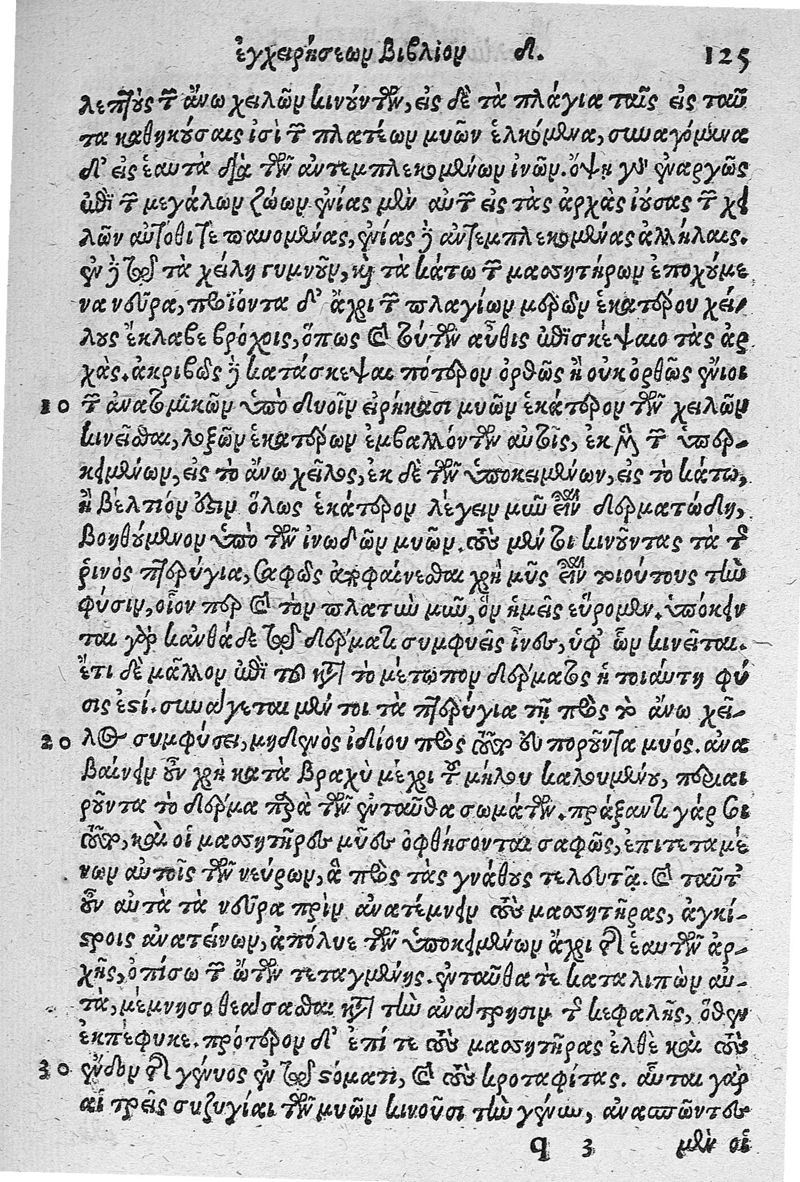 ἐγχειρήσεων βιβλίον δ. 125
λεπτοὺς τῶν ἄνω χειλῶν κινούντων, εἰς δὲ τὰ πλάγια ταῖς εἰς ταῦ
τα καθηκούσαις ἰσὶ τῶν πλατέων μυῶν ἑλκόμενα, συναγόμενα
δ' εἰς ἑαυτὰ διὰ τῶν ἀντεμπλεκομένων ἰνῶν. ὄψει γοῦν ἐναργῶς
ἐπὶ τῶν μεγάλων ζώων ἐνίας μὲν αὐτῶν εἰς τὰς ἀρχὰς ἰούσας τῶν χει
λῶν αὐτόθι τε παυομένας, ἐνίας δὲ ἀντεμπλεκομένας ἀλλήλαις.
ἐν δὲ τῷ τὰ χείλη γυμνοῦν, καὶ τὰ κάτω τῶν μασητήρων ἐποχούμε
να νεῦρα, προϊόντα δ' ἄχρι τῶν πλαγίων μερῶν ἑκατέρου χεί-
λους ἔκλαβε βρόχοις, ὅπως καὶ τούτων αὖθις ἐπισκέψαιο τὰς ἀρ
χάς. ἀκριβῶς δὲ κατάσκεψαι πότερον ὀρθῶς ἢ οὐκ ὀρθῶς ἔνιοι
10 τῶν ἀνατομικῶν ὑπὸ δυοῖν εἰρήκασι μυῶν ἑκάτερον τῶν χειλῶν
κινεῖσθαι, λοξῶν ἑκατέρων ἐμβαλλόντων αὐτοῖς, ἐκ μὲν τῶν ὑπερ-
κειμένων, εἰς τὸ ἄνω χεῖλος, ἐκ δὲ τῶν ὑποκειμένων, εἰς τὸ κάτω,
ἢ βέλτιόν ἐστιν ὅλως ἑκάτερον λέγειν μῦν εἶναι δερματώδη,
βοηθούμενον ὑπὸ τῶν ἰνωδῶν μυῶν. τοὺς μέντοι κινοῦντας τὰ τῆς
ῥινὸς πτερύγια, σαφῶς ἀποφαίνεσθαι χρὴ μῦς εἶναι τοιούτους τὴν
φύσιν, οἷον περ καὶ τὸν πλατὺν μῦν, ὃν ἡμεῖς εὕρομεν. ὑπόκειν
ται γὰρ κἀνθάδε τῷ δέρματι συμφυεῖς ἶνες, ὑφ' ὧν κινεῖται.
ἔτι δὲ μᾶλλον ἐπὶ τοῦ κατὰ τὸ μέτωπον δέρματος ἡ τοιαύτη φύ
σις ἐστί. συνάγεται μέν τοι τὰ πτερύγια τῇ πρὸς τὸ ἄνω χεῖ-
20 λος συμφύσει, μηδενὸς ἰδίου πρὸς τοῦτο εὐποροῦντα μυός. ἀνα
βαίνειν οὖν χρὴ κατὰ βραχὺ μέχρι τοῦ μήλου καλουμένου, περιαι
ροῦντα τὸ δέρμα παρὰ τῶν ἐνταῦθα σωμάτων. πράξαντι γάρ σοι
τοῦτο, καὶ οἱ μασητῆρες μῦες ὀφθήσονται σαφῶς, ἐπιτεταμέ
νων αὐτοῖς τῶν νεύρων, ἃ πρὸς τὰς γνάθους τελευτᾷ. καὶ ταῦτ'
οὖν αὐτὰ τὰ νεῦρα πρὶν ἀνατέμνειν τοὺς μασητῆρας, ἀγκί-
στροις ἀνατείνων, ἀπόλυε τῶν ὑποκειμένων ἄχρι τῆς ἑαυτῶν ἀρ-
χῆς, ὀπίσω τῶν ὤτων τεταγμένης. ἐνταῦθα τε καταλιπὼν αὐ-
τὰ, μέμνησο θεάσασθαι κατὰ τὴν ἀνάτρησιν τῆς κεφαλῆς, ὅθεν
ἐκπέφυκε. πρότερον δ' ἐπί τε τοὺς μασητῆρας ἐλθὲ καὶ τοὺς
30 ἔνδον τῆς γένυος ἐν τῷ στόματι, καὶ τοὺς κροταφίτας. αὗται γὰρ
αἱ τρεῖς συζυγίαι τῶν μυῶν κινοῦσι τὴν γένυν, ἀνασπῶντες
q 3 μὲν οἱ